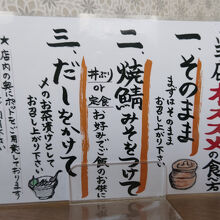 当店オススメの食べ方
一、そのまま
まずはそのまま
召し上がり下さい
二、焼鯖みそをつけて
丼ぶりor定食
お好みで一飯のお供に
三、だしをかけて
〆のお茶漬けとして
お召し上がり下さい
★店内の奥にポットをご用意しております